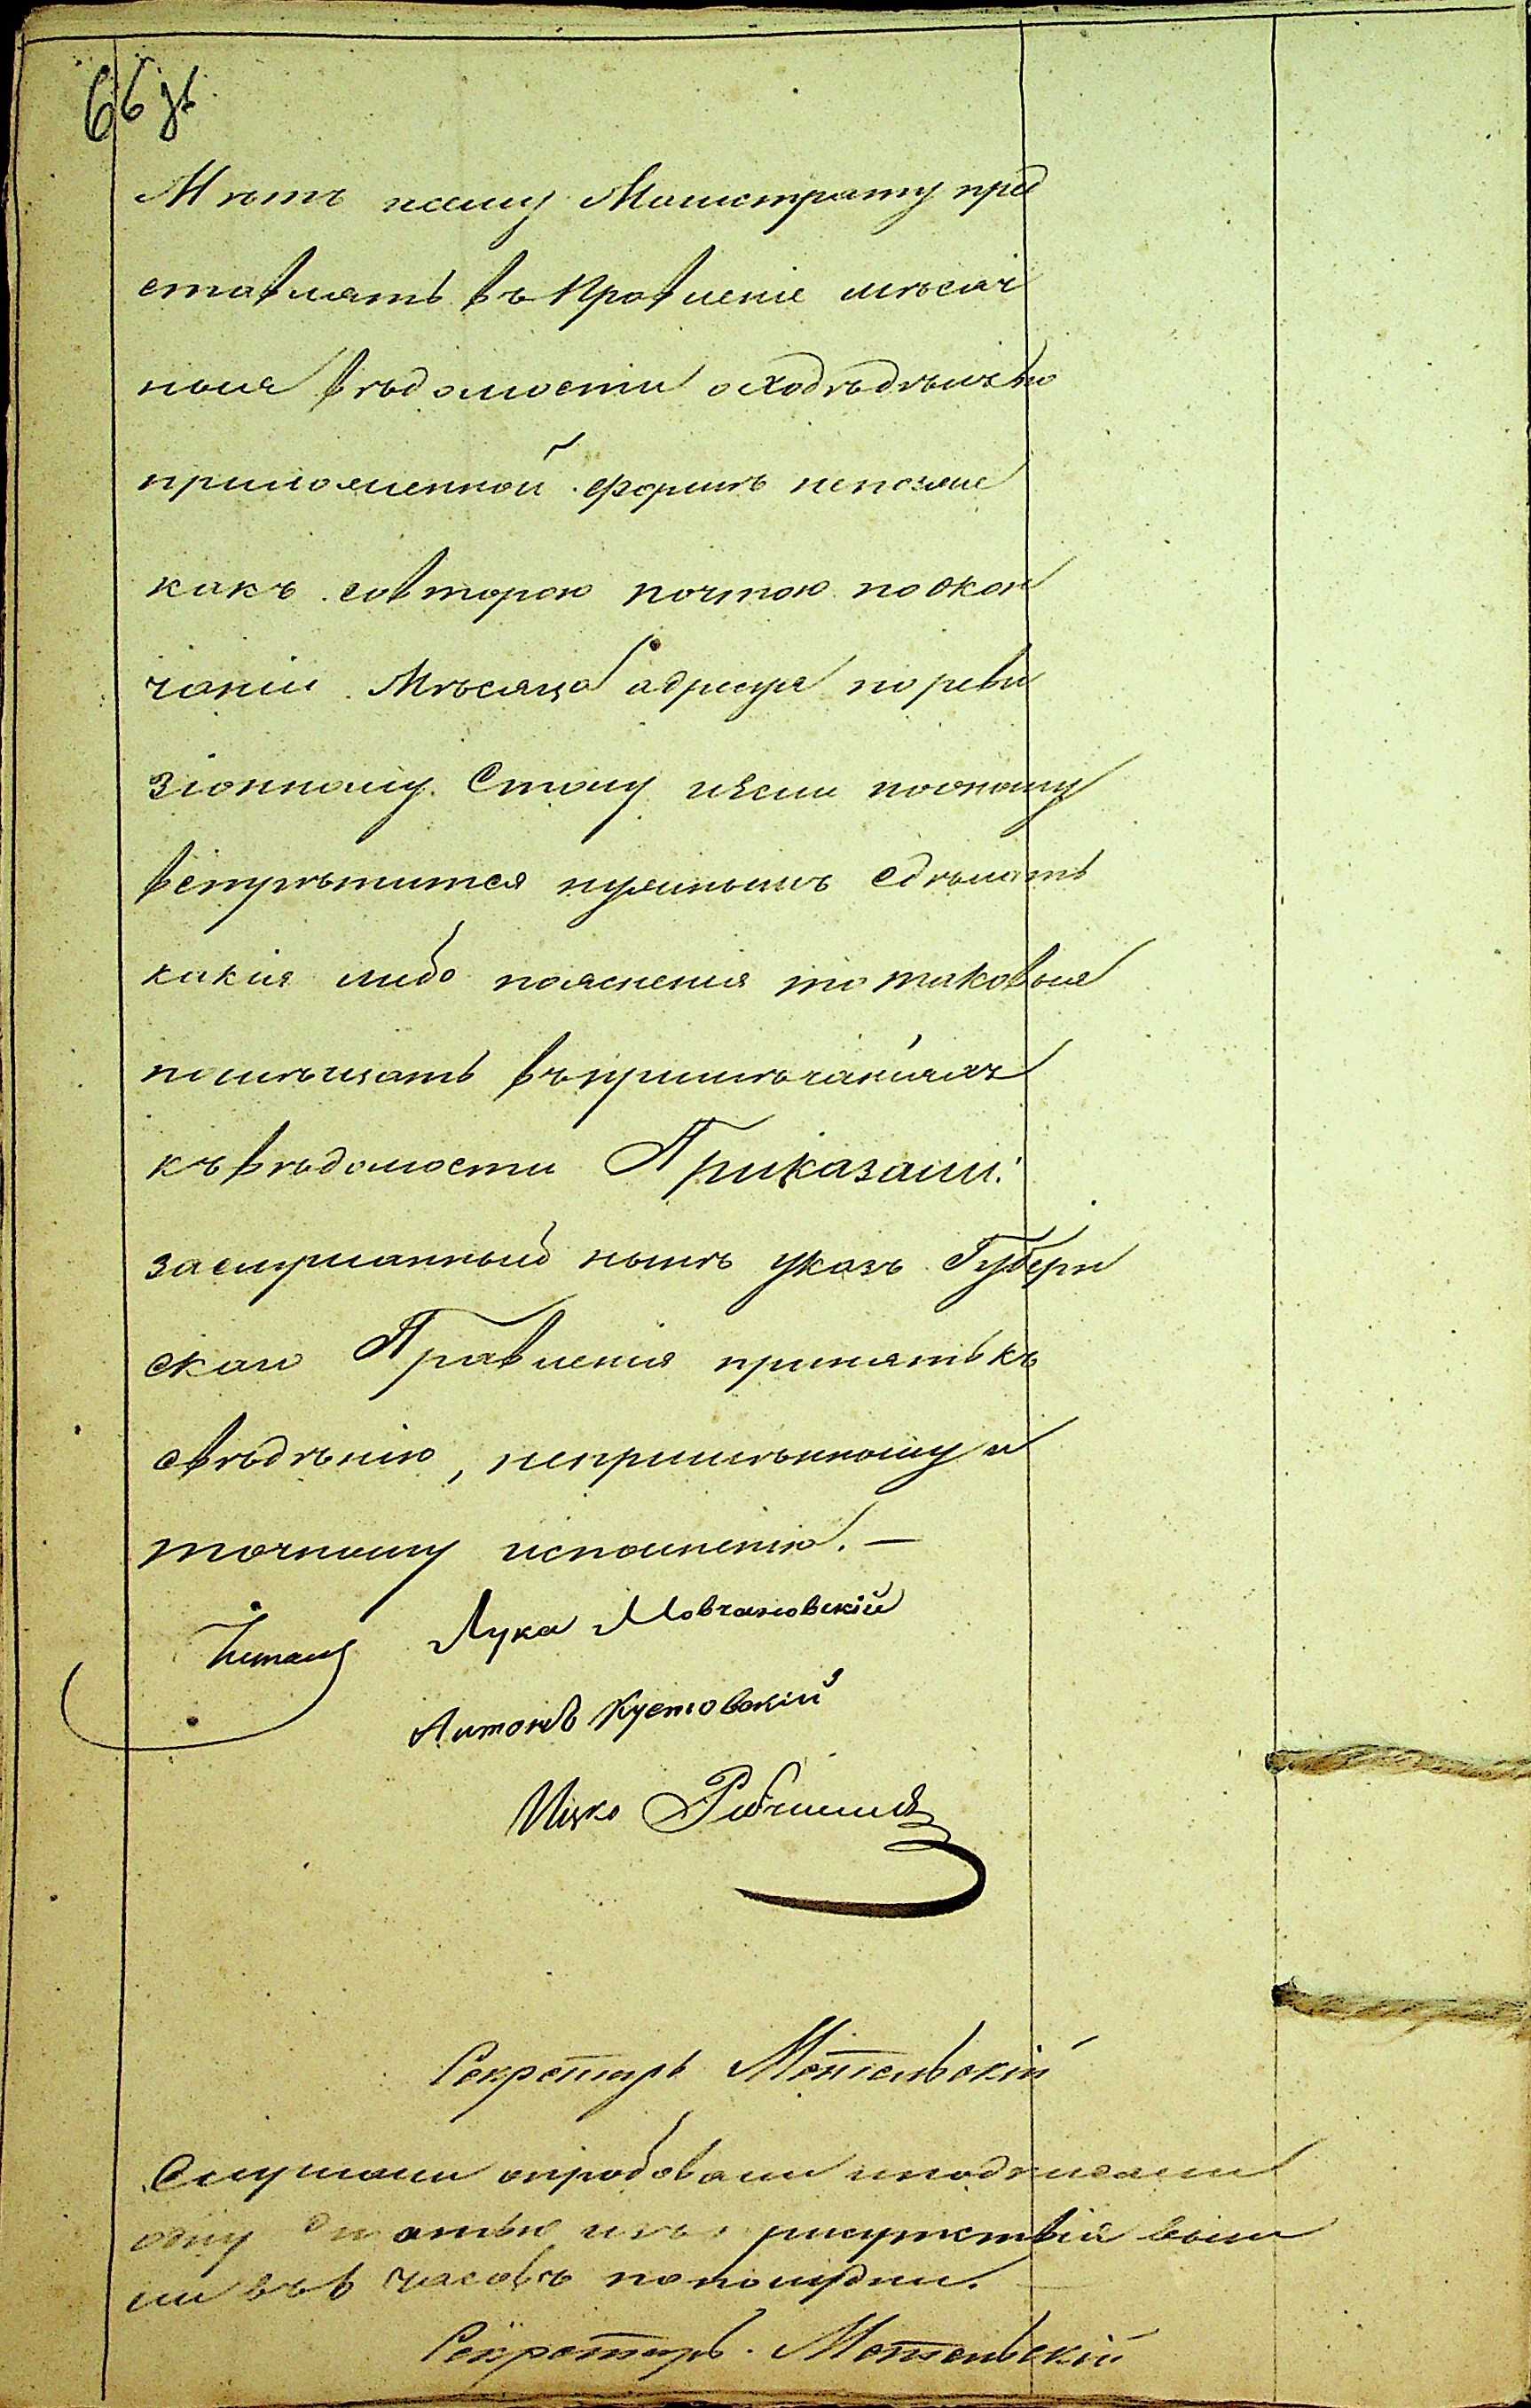 66 зв
Мѣтъ сему Магистрату пред
ставлять въ Правленіе мѣсяч
ныя вѣдомости о ходѣ дѣлъ по
приложенной формѣ непозже
какъ совторою почтою по окон
чаніи Мѣсяца адресуя по реви
зіонному Столу иѣсли пооному
встрѣтится нужнымъ сдѣлать
какія либо поясненія то таковыя
помѣщать въпримѣчаніяхъ
къ вѣдомости Приказали:
заслушанный нынѣ указъ Губерн
скаго Правленія принять къ
свѣдѣнію, непримѣнному и
точному исполненію. —
Лука Мовчановскій
Антонъ Кустовскій
Ицко
Секретарь Метельскій
Слушали опробовали иподписали
одну статью изъ присутствія вышли
ли въ в часовъ пополудни.
Секретарь Метельскій